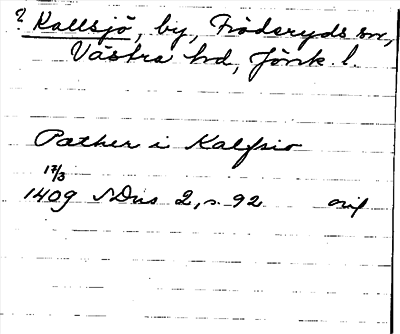 ? Kallsjö, by, Fröderyds sn,
Västra hd, Jönk. l.
Pather i Kalfsio
17/3
1409 SDns 2, s. 92 orig